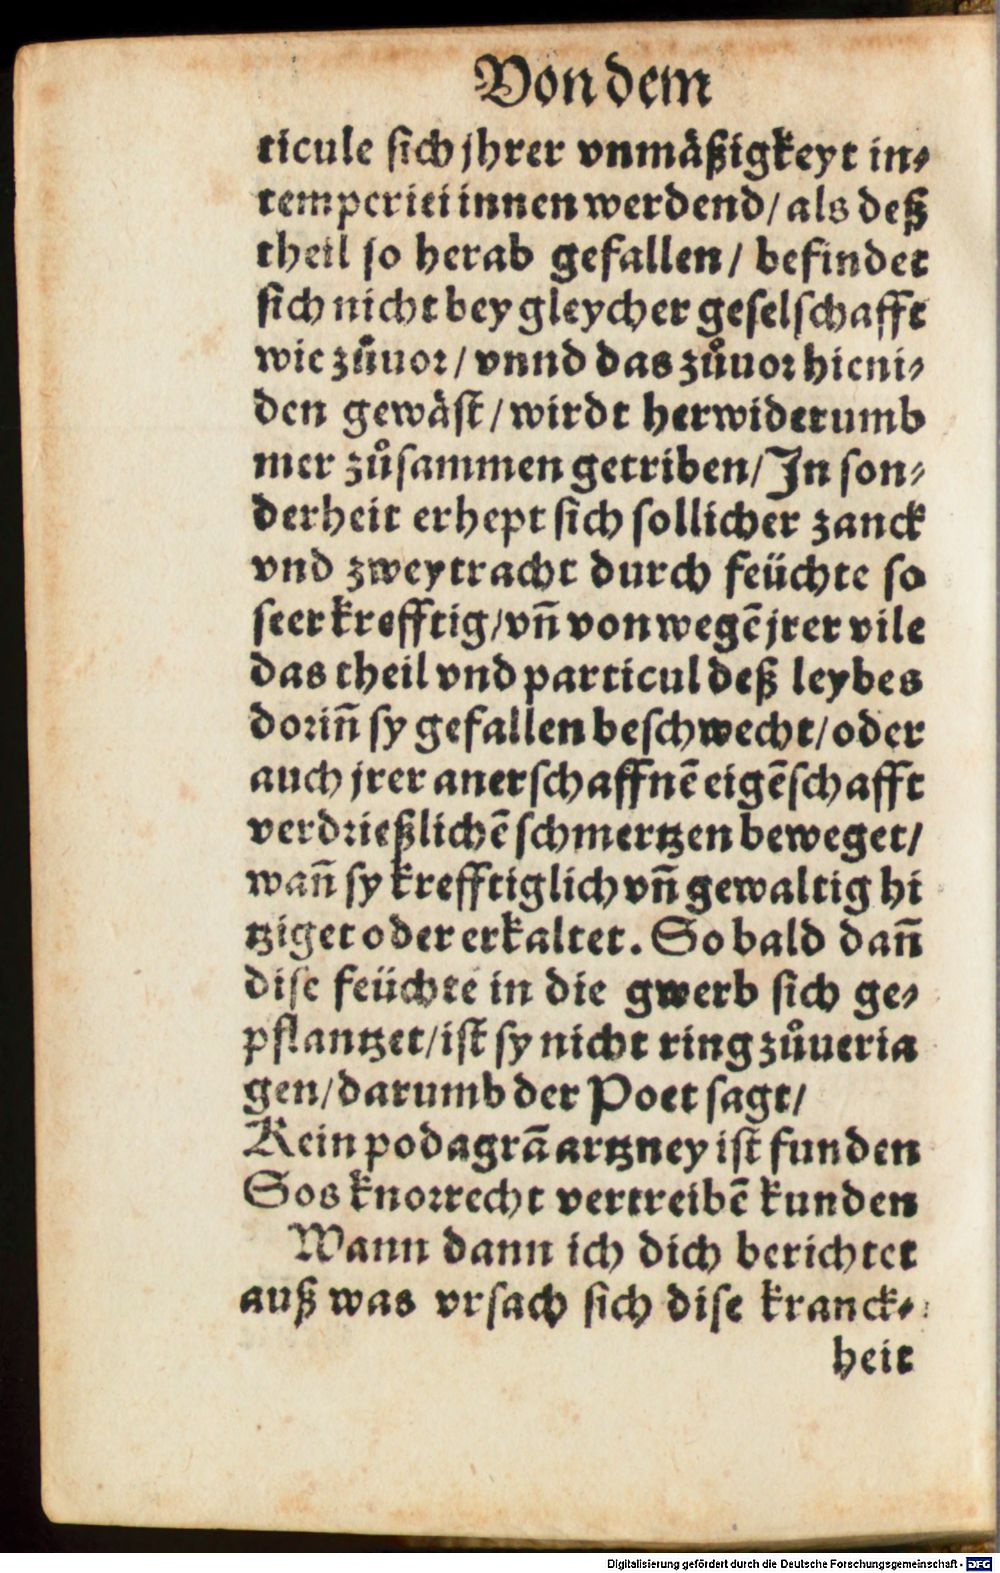 Von dem
ticule sich jhrer vnmäßigkeyt in⸗
temperiei innen werdend/ als deß
theil so herab gefallen/ befindet
sich nicht bey gleycher geselschafft
wie zůuor/ vnnd das zůuor hieni⸗
den gewäst/ wirdt herwiderumb
mer zůsammen getriben/ In son⸗
derheit erhept sich sollicher zanck
vnd zweytracht durch feüchte so
seer krefftig/ vñ von wegẽ jrer vile
das theil vnd particul deß leybes
doriñ sy gefallen beschwecht/ oder
auch jrer anerschaffnẽ eigẽschafft
verdrießlichẽ schmertzen beweget/
wañ sy krefftiglich vñ gewaltig hi
tziget oder erkaltet. So bald dañ
dise feüchte in die gwerb sich ge⸗
pflantzet/ ist sy nicht ring zůueria
gen/ darumb der Poet sagt/
Kein podagrã artzney ist funden
Sos knorrecht vertreibẽ kunden
Wann dann ich dich berichtet
auß was vrsach sich dise kranck⸗
heit
Digitalisierung gefördert durch die Deutsche Forschungsgemeinschaft - DFG